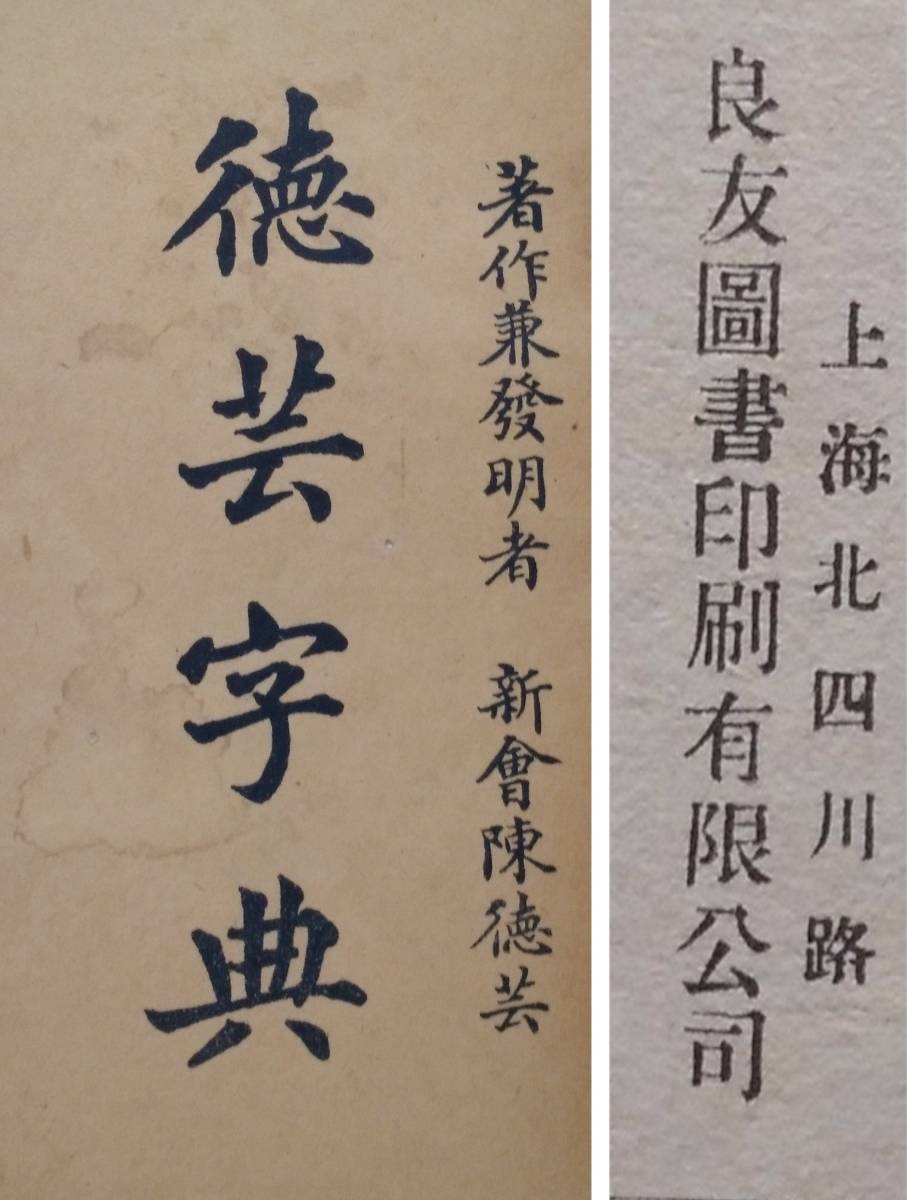 著作兼發明者 新會陳德芸
德芸字典
上海北四川路
良友圖書印刷有限公司